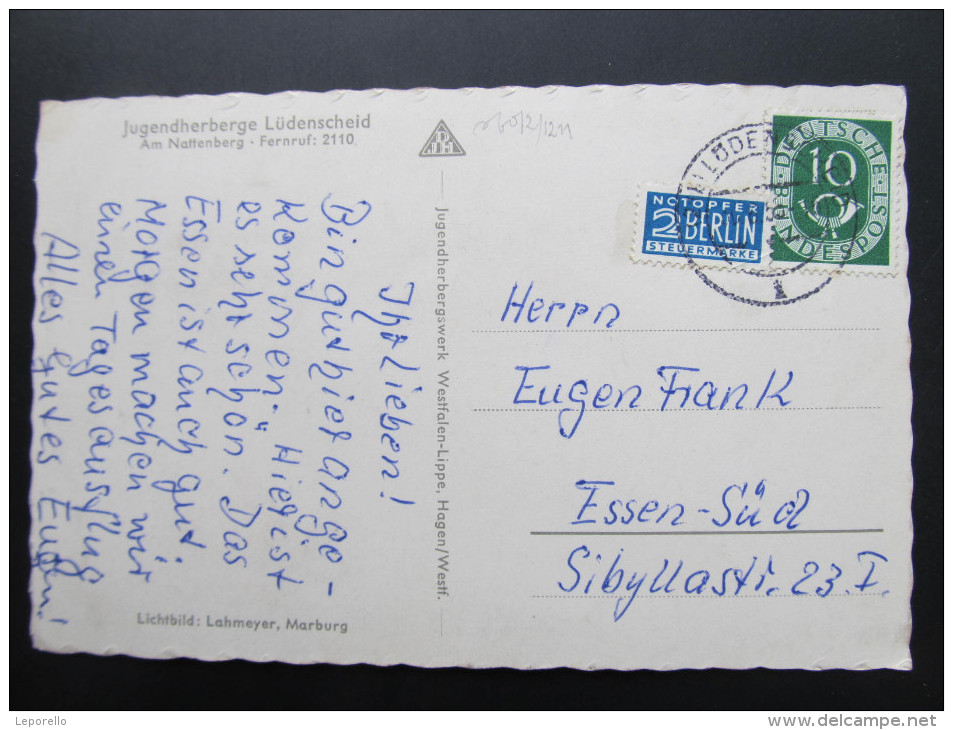 Jugendherberge Lüdenscheid
Am Nattenberg · Fernruf: 2110
Ihr Lieben!
Bin gut hier ange-
kommen. Hier ist
es sehr schön. Das
Essen ist auch gut.
Morgen machen wir
einen Tagesausflug
Alles gutes Eugen!
Lichtbild: Lahmeyer, Marburg
Jugendherbergswerk Westfalen-Lippe, Hagen/Westf.
NOTOPFER
2 BERLIN
STEUERMARKE
DEUTSCHE
BUNDESPOST
10
LÜDEN
Herrn
Eugen Frank
Essen-Süd
Sibyllastr. 23 I.
Leporello
www.delcampe.net